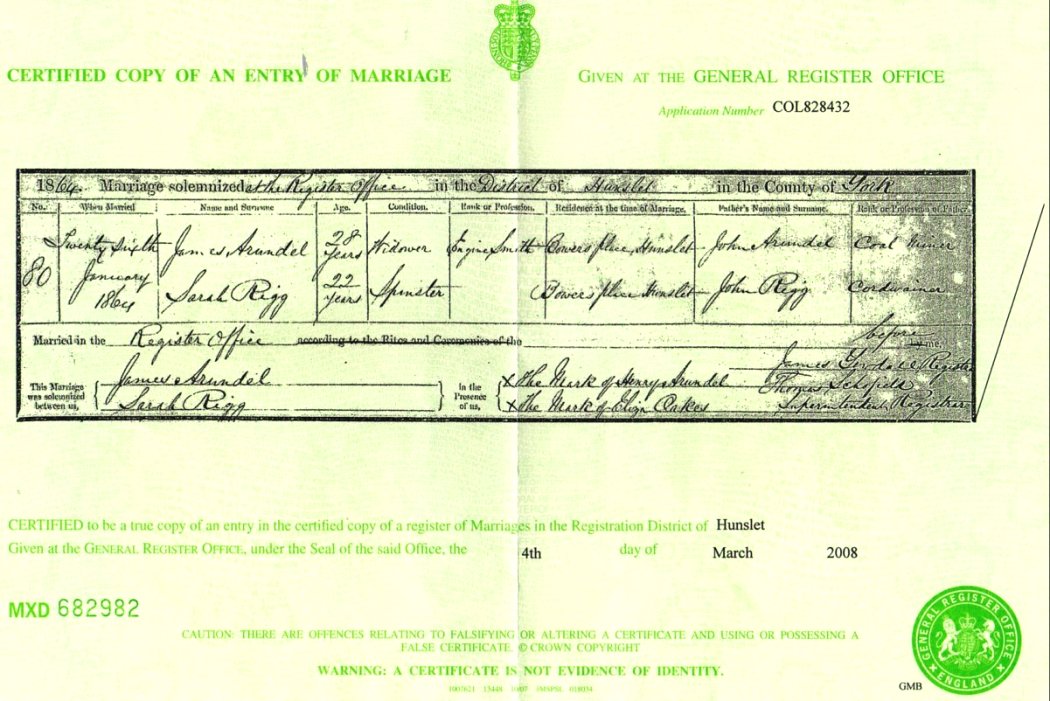 CERTIFIED COPY OF AN ENTRY OF MARRIAGE
GIVEN AT THE GENERAL REGISTER OFFICE
Application Number COL828432
1864. Marriage solemnized at the Register Office in the District of Hunslet in the County of York
No. When Married Name and Surname Age. Condition. Rank or Profession. Residence at the time of Marriage. Father's Name and Surname. Rank or Profession of Father
Twenty Sixth James Arundel 28 years Widower Engine Smith Bowers place, Hunslet John Arundel Coal Miner
80 January 1864 Sarah Rigg 22 years Spinster Bowers place Hunslet John Rigg Cordwainer
Married in the Register Office according to the Rites and Ceremonies of the before me,
This Marriage was solemnized between us, James Arundel In the Presence of us, X The Mark of Henry Arundel James Registrar
Sarah Rigg X The Mark of Eliza Oakes Thomas Schofield
Superintendent Registrar
CERTIFIED to be a true copy of an entry in the certified copy of a register of Marriages in the Registration District of Hunslet
Given at the GENERAL REGISTER OFFICE, under the Seal of the said Office, the 4th day of March 2008
MXD 682982
CAUTION: THERE ARE OFFENCES RELATING TO FALSIFYING OR ALTERING A CERTIFICATE AND USING OR POSSESSING A
FALSE CERTIFICATE. © CROWN COPYRIGHT
WARNING: A CERTIFICATE IS NOT EVIDENCE OF IDENTITY.
GENERAL REGISTER OFFICE
ENGLAND
GMB